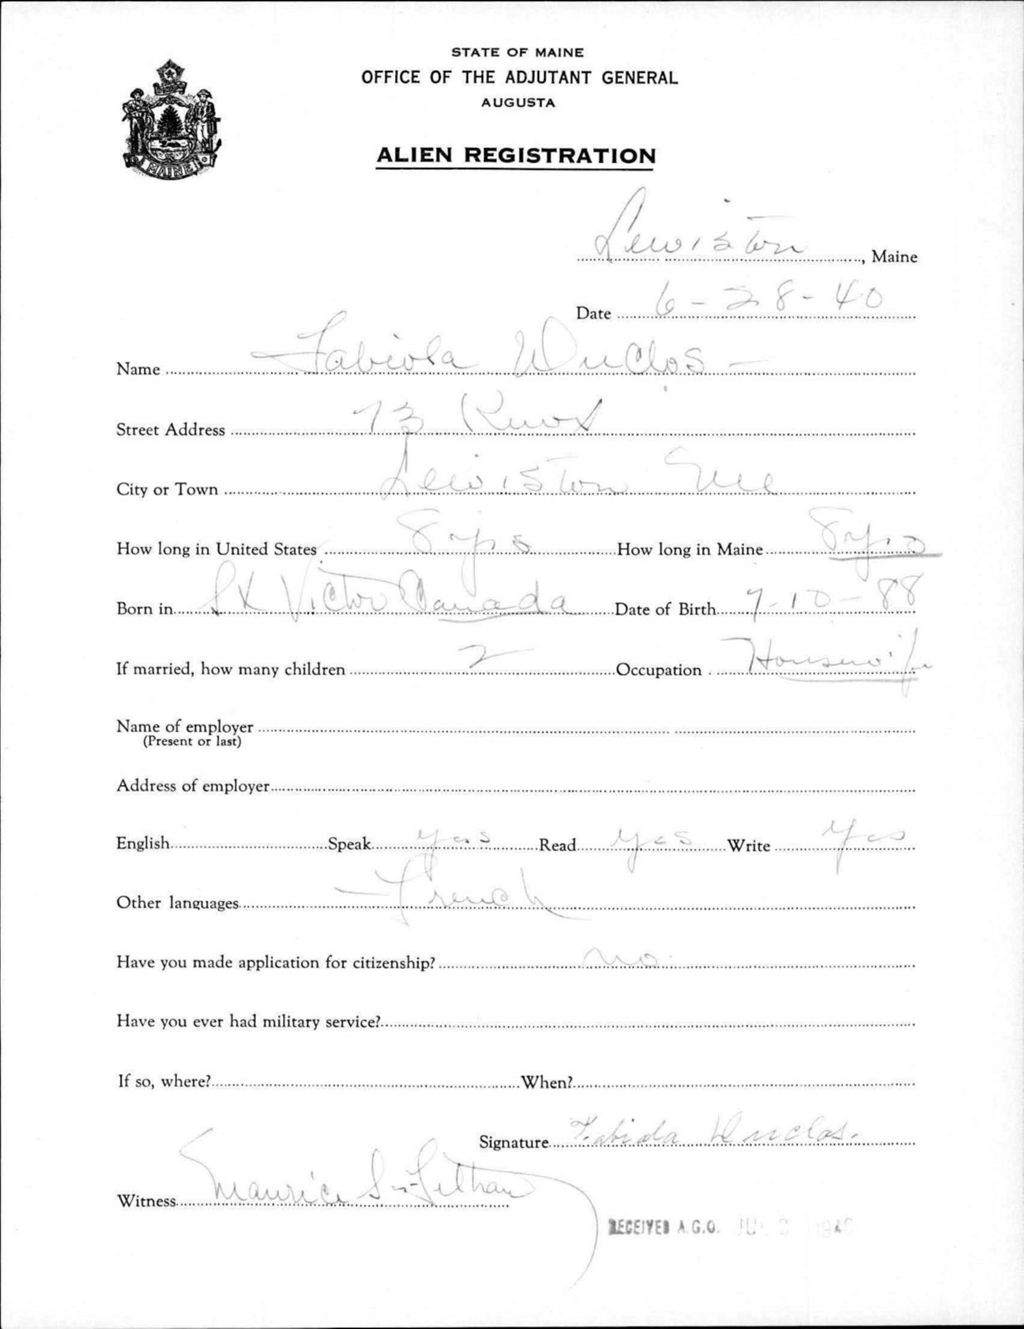 STATE OF MAINE
OFFICE OF THE ADJUTANT GENERAL
AUGUSTA
MAINE
ALIEN REGISTRATION
Lewiston, Maine
Date 6-28-40
Name Fabiola Duclos
Street Address 73 
City or Town Lewiston Me
How long in United States 8 yrs How long in Maine 8 yrs
Born in St Victor Canada Date of Birth 7-10-88
If married, how many children 2 Occupation Housewife
Name of employer
(Present or last)
Address of employer
English Speak yes Read yes Write yes
Other languages French
Have you made application for citizenship? no
Have you ever had military service?
If so, where? When?
Signature Fabiola Duclos.
Witness Maurice
RECEIVED A.G.O.